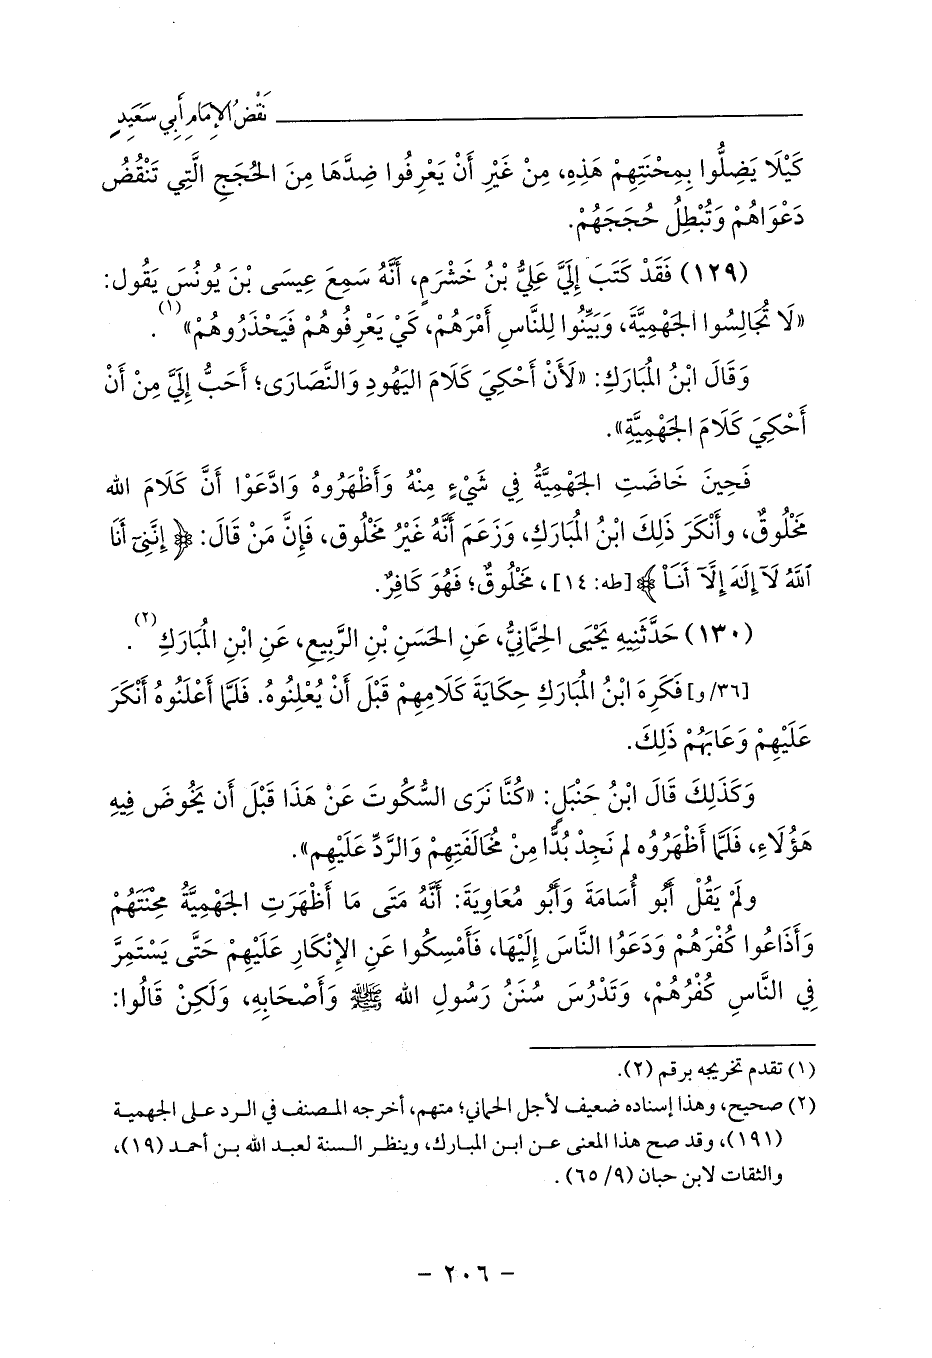 نَقْضُ الإِمَامِ أَبِي سَعِيدٍ
كَيْلَا يَضِلُّوا بِمِحْنَتِهِمْ هَذِهِ، مِنْ غَيْرِ أَنْ يَعْرِفُوا ضِدَّهَا مِنَ الحُجَجِ الَّتِي تَنْقُضُ
دَعْوَاهُمْ وَتُبْطِلُ حُجَجَهُمْ.
(١٢٩) فَقَدْ كَتَبَ إِلَيَّ عَلِيُّ بْنُ خَشْرَمٍ، أَنَّهُ سَمِعَ عِيسَى بْنَ يُونُسَ يَقُول:
«لَا تُجَالِسُوا الجَهْمِيَّةَ، وَبَيِّنُوا لِلنَّاسِ أَمْرَهُمْ، كَيْ يَعْرِفُوهُمْ فَيَحْذَرُوهُمْ»(١).
وَقَالَ ابْنُ المُبَارَكِ: «لَأَنْ أَحْكِيَ كَلَامَ اليَهُودِ وَالنَّصَارَى؛ أَحَبُّ إِلَيَّ مِنْ أَنْ
أَحْكِيَ كَلَامَ الجَهْمِيَّةِ».
فَحِينَ خَاضَتِ الجَهْمِيَّةُ فِي شَيْءٍ مِنْهُ وَأَظْهَرُوهُ وَادَّعَوْا أَنَّ كَلَامَ الله
مَخْلُوقٌ، وأَنْكَرَ ذَلِكَ ابْنُ المُبَارَكِ، وَزَعَمَ أَنَّهُ غَيْرُ مَخْلُوق، فَإِنَّ مَنْ قَالَ: ﴿ إِنَّنِيٓ أَنَا
ٱللَّهُ لَآ إِلَٰهَ إِلَّآ أَنَا۠ ﴾ [طه: ١٤]، مَخْلُوقٌ؛ فَهُوَ كَافِرٌ.
(١٣٠) حَدَّثَنِيهِ يَحْيَى الحِمَّانِيُّ، عَنِ الحَسَنِ بْنِ الرَّبِيعِ، عَنِ ابْنِ المُبَارَكِ(٢).
[٣٦/ و] فَكَرِهَ ابْنُ المُبَارَكِ حِكَايَةَ كَلَامِهِمْ قَبْلَ أَنْ يُعْلِنُوهُ. فَلَمَّا أَعْلَنُوهُ أَنْكَرَ
عَلَيْهِمْ وَعَابَهُمْ ذَلِكَ.
وَكَذَلِكَ قَالَ ابْنُ حَنْبَلٍ: «كُنَّا نَرَى السُّكُوتَ عَنْ هَذَا قَبْلَ أَن يَخُوضَ فِيهِ
هَؤُلَاءِ، فَلَمَّا أَظْهَرُوُه لم نَجِدْ بُدًّا مِنْ مُخَالَفَتِهِمْ وَالرَّدِّ عَلَيْهِم».
ولَمْ يَقُلْ أَبُو أُسَامَةَ وَأَبُو مُعَاوِيَةَ: أَنَّهُ مَتَى مَا أَظْهَرَتِ الجَهْمِيَّةُ مِحْنَتَهُمْ
وَأَذَاعُوا كُفْرَهُمْ وَدَعَوُا النَّاسَ إِلَيْهَا، فَأَمْسِكُوا عَنِ الإِنْكَارِ عَلَيْهِمْ حَتَّى يَسْتَمِرَّ
فِي النَّاسِ كُفْرُهُمْ، وَتَدْرُسَ سُنَنُ رَسُولِ الله ﷺ وَأَصْحَابِهِ، وَلَكِنْ قَالُوا:
(١) تقدم تخريجه برقم (٢).
(٢) صحيح، وهذا إسناده ضعيف لأجل الحماني؛ متهم، أخرجه المصنف في الرد على الجهمية
(١٩١)، وقد صح هذا المعنى عن ابن المبارك، وينظر السنة لعبد الله بن أحمد (١٩)،
والثقات لابن حبان (٩/ ٦٥).
- ٢٠٦ -